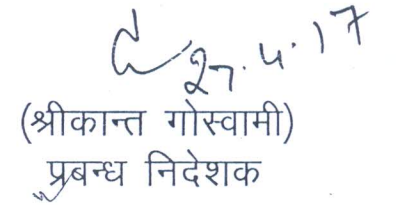 27.4.17
(श्रीकान्त गोस्वामी)
प्रबन्ध निदेशक